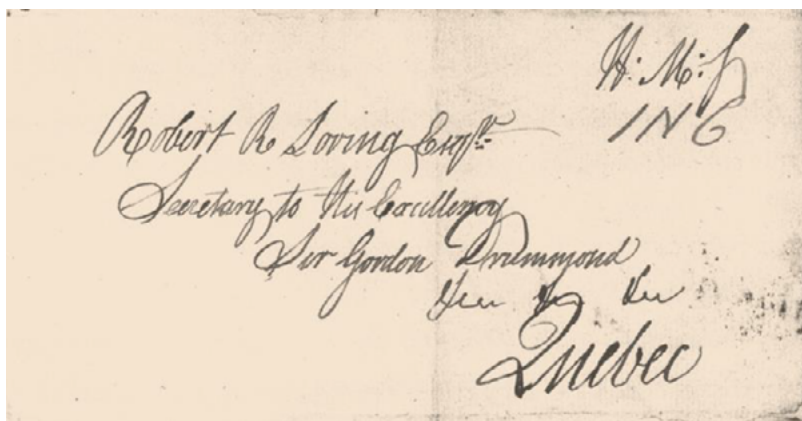 H: M: S
1 N 6
Robert R Loring Esqr.
Secretary to His Excellency
Sir Gordon Drummond
Quebec